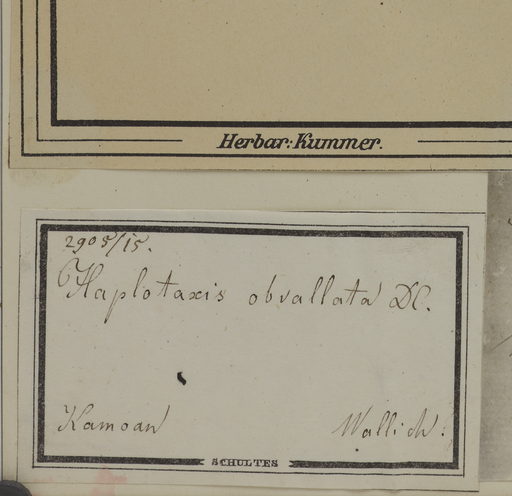 Herbar: Kummer.
2905/15.
Haplotaxis obvallata DC.
Kamoan Wallich.
SCHULTES